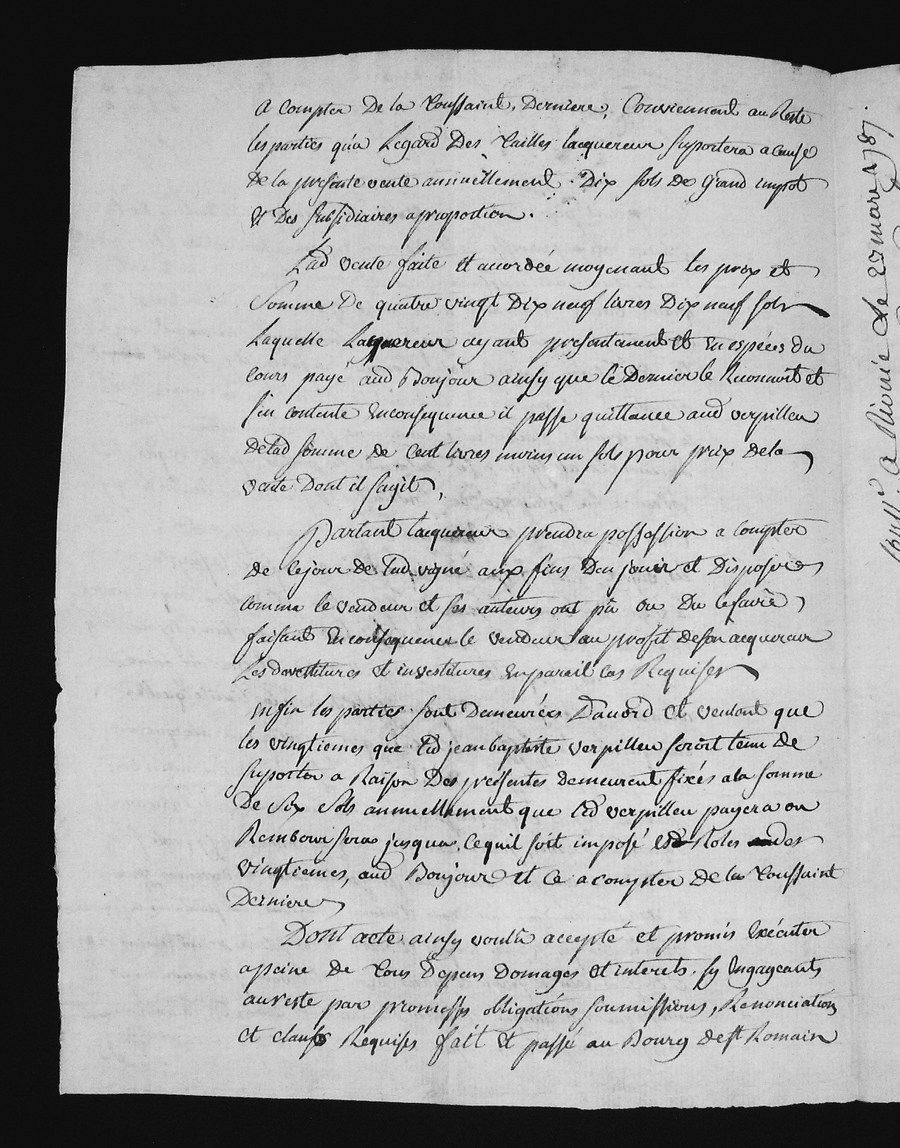 a compter de la toussaint derniere, Conviennent au Reste
les parties qu'a Legard des tailles lacquereur suportera a cause
de la presente vente annuellement dix sols de grand impot
& des subsidiaires a proportion.
Lad vente faite et accordée moyenant les prix et
somme de quatre vingt dix neuf livres dix neuf sols
Laquelle Lacquereur ayant presentament et en espéces du
cours payé aud Bonjour ainsy que le dernier le Reconnoit et
s'en contente en consequence il passe quittance aud verpilleu
delad somme de cent livres moins un sols pour prix de la
vente dont il sagit,
Partant lacquereur prendra possession a compter
de ce jour de lad vigne aux fins d'en jouir et disposer
comme le vendeur et ses auteurs ont pu ou du le faire
faisant en consequence le vendeur au profit de son acquereur
Les devestitures et investitures en pareil cas Requises
enfin les parties sont demeurées d'acord et veulent que
les vingtiemes que led jean baptiste verpilleu seroit tenu de
suporter a Raison des presentes demeurent fixés a la somme
de six sols annuellement que led verpilleu payera ou
Remboursera jusqua ce quil soit imposé Roles des
vingtiemes, aud Bonjour et ce a compter de la toussaint
derniere
Dont acte ainsy voulu accepté et promis executer
a peine de tous depens domages et interets. sy engageants
au reste par promesses obligations soumissions, Renonciations
et clauses Requises fait & passé au Bourg de st Romain
a Rivirie Le 27 mars 1787.